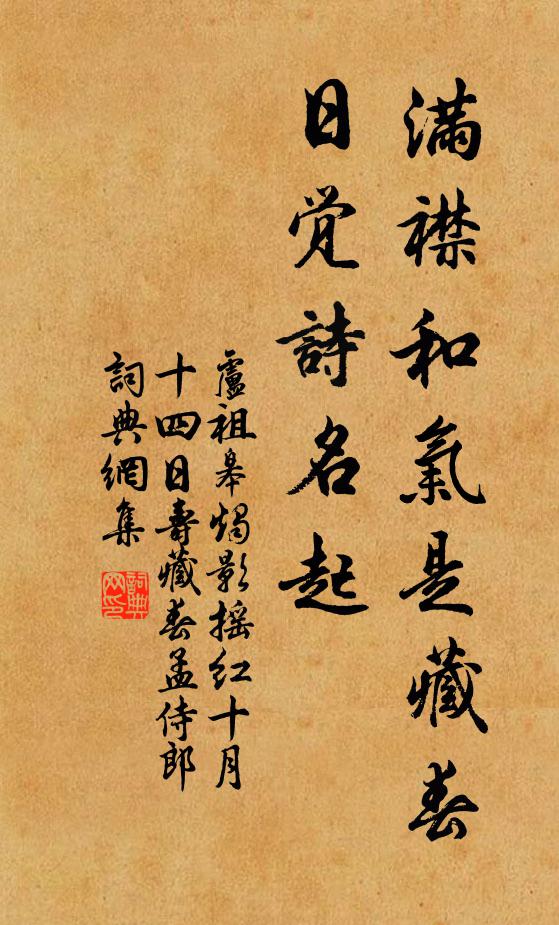 滿襟和氣是藏春
日覚詩名起
盧祖皋燭影摇红十月
十四日壽藏春孟侍郎
詞典網集
詞典网印